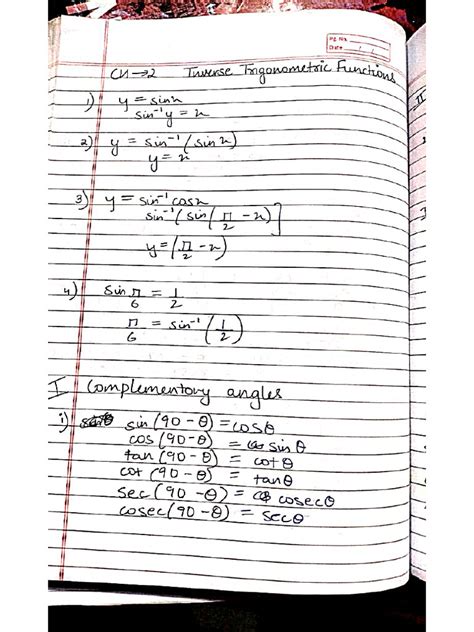 Pg. No.
Date / /
CH → 2 Inverse Trigonometric Functions
1) y = sinx
sin⁻¹y = x
2) y = sin⁻¹(sinx)
y = x
3) y = sin⁻¹ cosx
sin⁻¹(sin(π/2 - x)]
y = (π/2 - x)
4) sin π/6 = 1/2
π/6 = sin⁻¹(1/2)
I Complementory angles
i) sin(90 - θ) = cosθ
cos(90 - θ) = sinθ
tan(90 - θ) = cotθ
cot(90 - θ) = tanθ
sec(90 - θ) = cosecθ
cosec(90 - θ) = secθ